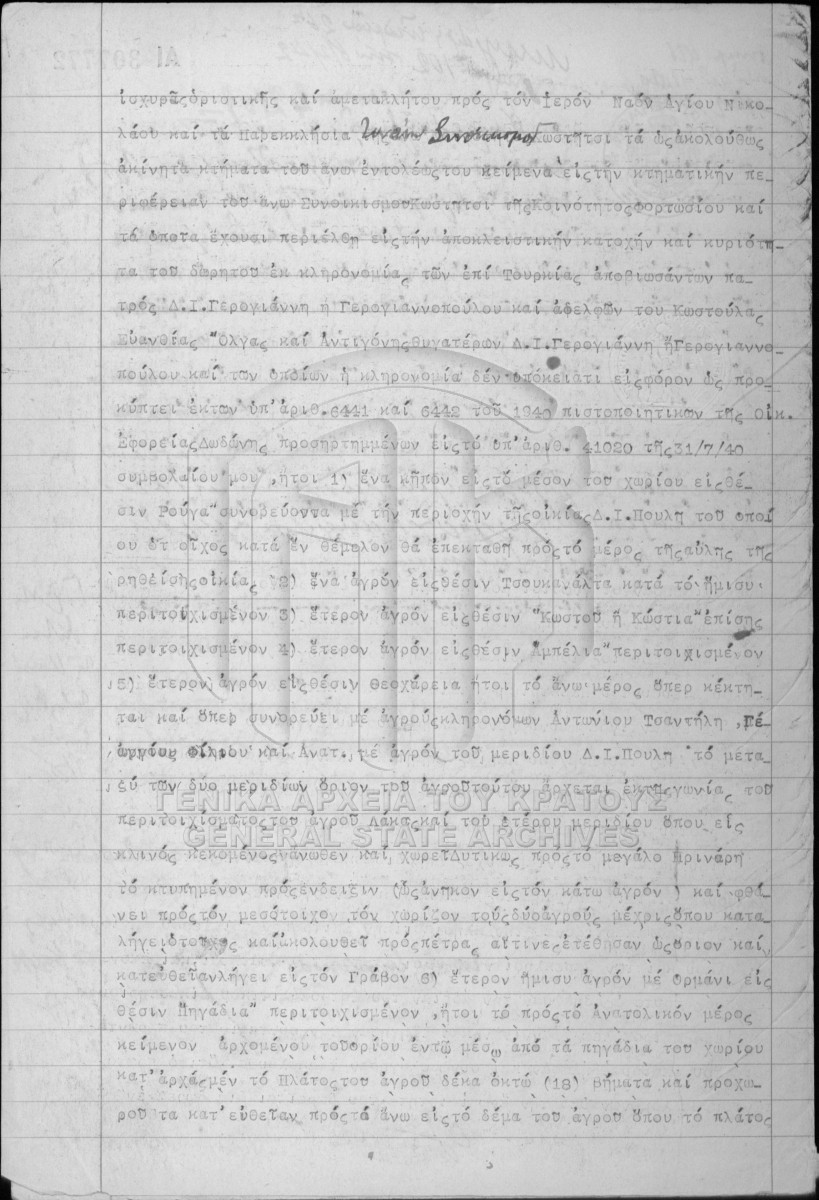 ἰσχυρᾶς ὁριστικῆς καί ἀμετακλήτου πρός τόν Ἱερόν Ναόν Ἁγίου Νικο-
λάου καί τά Παρεκκλήσια Κωστητσι τά ὡς ἀκολούθως
ἀκίνητα κτήματα τοῦ ἄνω ἐντολέως του κείμενα εἰς τήν κτηματικήν πε-
ριφέρειαν τοῦ ἄνω Συνοικισμοῦ Κωστητσι τῆς Κοινότητος Φορτωσίου καί
τά ὁποῖα ἔχουσι περιέλθῃ εἰς τήν ἀποκλειστικήν κατοχήν καί κυριότη-
τα τοῦ δωρητοῦ ἐκ κληρονομίας τῶν ἐπί Τουρκίας ἀποβιωσάντων πα-
τρός Δ.Ι.Γερογιάννη ἤ Γερογιαννοπούλου καί ἀδελφῶν του Κωστούλας
Εὐανθίας Ὄλγας καί Ἀντιγόνης θυγατέρων Δ.Ι.Γερογιάννη ἤ Γερογιαννο-
πούλου καί τῶν ὁποίων ἡ κληρονομία δέν ὑπόκειται εἰς φόρον ὡς προ-
κύπτει ἐκ τῶν ὑπ' ἀριθ. 6441 καί 6442 τοῦ 1940 πιστοποιητικῶν τῆς Οἰκ.
Ἐφορείας Δωδώνης προσηρτημμένων εἰς τό ὑπ' ἀριθ. 41020 τῆς 31/7/40
συμβολαίου μου ,ἤτοι 1) ἕνα κῆπον εἰς τό μέσον τοῦ χωρίου εἰς θέ-
σιν Ρούγα" συνορεύοντα μέ τήν περιοχήν τῆς οἰκίας Δ.Ι.Πουλη τοῦ ὁποί
ου ὁ τοῖχος κατά ἕν θέμελον θά ἐπεκταθῇ πρός τό μέρος τῆς αὐλῆς τῆς
ρηθείσης οἰκίας 2) ἕνα ἀγρόν εἰς θέσιν Τσουκανάλτα κατά τό ἥμισυ
περιτοιχισμένον 3) ἕτερον ἀγρόν εἰς θέσιν "Κωστοῦ ἤ Κώστια" ἐπίσης
περιτοιχισμένον 4) ἕτερον ἀγρόν εἰς θέσιν Ἀμπέλια" περιτοιχισμένον
5) ἕτερον ἀγρόν εἰς θέσιν Θεοχάρεια ἤτοι τό ἄνω μέρος ὅπερ κέκτη-
ται καί ὅπερ συνορεύει μέ ἀγρούς κληρονόμων Ἀντωνίου Τσαντήλη ,Γέ
ωργίου Φίλιου καί Ἀνατ. μέ ἀγρόν τοῦ μεριδίου Δ.Ι.Πουλη τό μετα-
ξύ τῶν δύο μεριδίων ὅριον τοῦ ἀγροῦ τούτου ἄρχεται ἐκ τῆς γωνίας τοῦ
περιτοιχίσματος τοῦ ἀγροῦ Λάκας καί τοῦ ἑτέρου μεριδίου ὅπου εἰς
κλινός κεκομένος ἄνωθεν καί χωρεῖ Δυτικῶς πρός τό μεγάλο Πρινάρη
τό κτυπημένον πρός ἔνδειξιν (ὡς ἀνῆκον εἰς τόν κάτω ἀγρόν ) καί φθά-
νει πρός τόν μεσότοιχον τόν χωρίζον τούς δύο ἀγρούς μέχρις ὅπου κατα-
λήγει ὁ τοῖχος καί ἀκολουθεῖ πρός πέτρας αἵτινες ἐτέθησαν ὡς ὅριον καί
κατ' εὐθεῖαν λήγει εἰς τόν Γράβον 6) ἕτερον ἥμισυ ἀγρόν μέ ὀρμάνι εἰς
θέσιν Πηγάδια" περιτοιχισμένον ,ἤτοι τό πρός τό Ἀνατολικόν μέρος
κείμενον ἀρχομένου τοῦ ὁρίου ἐν τῷ μέσῳ ἀπό τά πηγάδια τοῦ χωρίου
κατ' ἀρχάς μέν τό Πλάτος τοῦ ἀγροῦ δέκα ὀκτώ (18) βήματα καί προχω-
ροῦ τα κατ' εὐθεῖαν πρός τά ἄνω εἰς τό δέμα τοῦ ἀγροῦ ὅπου τό πλάτος
ΓΕΝΙΚΑ ΑΡΧΕΙΑ ΤΟΥ ΚΡΑΤΟΥΣ
GENERAL STATE ARCHIVES